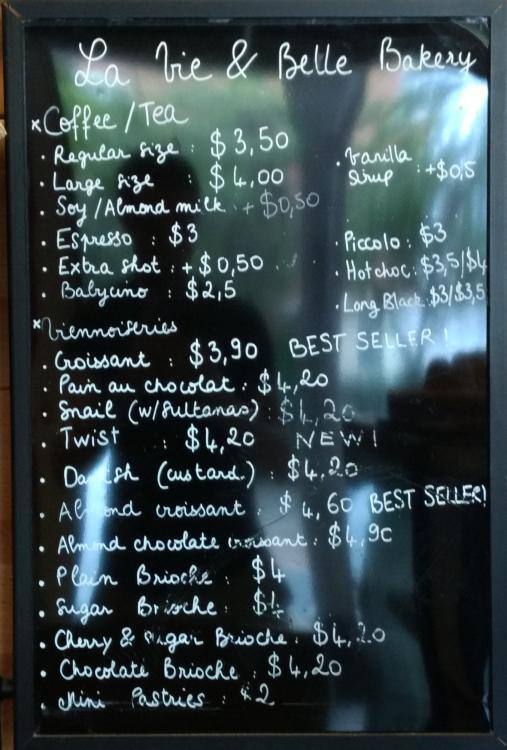 La Vie & Belle Bakery
*Coffee/Tea
. Regular size : $3,50
. Large size : $4,00
. Soy/Almond milk : + $0,50
. Espresso : $3
. Extra shot : + $0,50
. Babycino : $2,5
. Vanilla
Sirup : +$0,5
. Piccolo : $3
. Hot choc : $3,5/$4
. Long Black : $3/$3,5
*Viennoiseries
. Croissant : $3,90 BEST SELLER!
. Pain au chocolat : $4,20
. Snail (w/Sultanas) : $4,20
. Twist : $4,20 NEW!
. Danish (custard) : $4,20
. Almond croissant : $4,60 BEST SELLER!
. Almond chocolate croissant : $4,90
. Plain Brioche : $4
. Sugar Brioche : $4
. Cherry & Sugar Brioche : $4,20
. Chocolate Brioche : $4,20
. Mini Pastries : $2